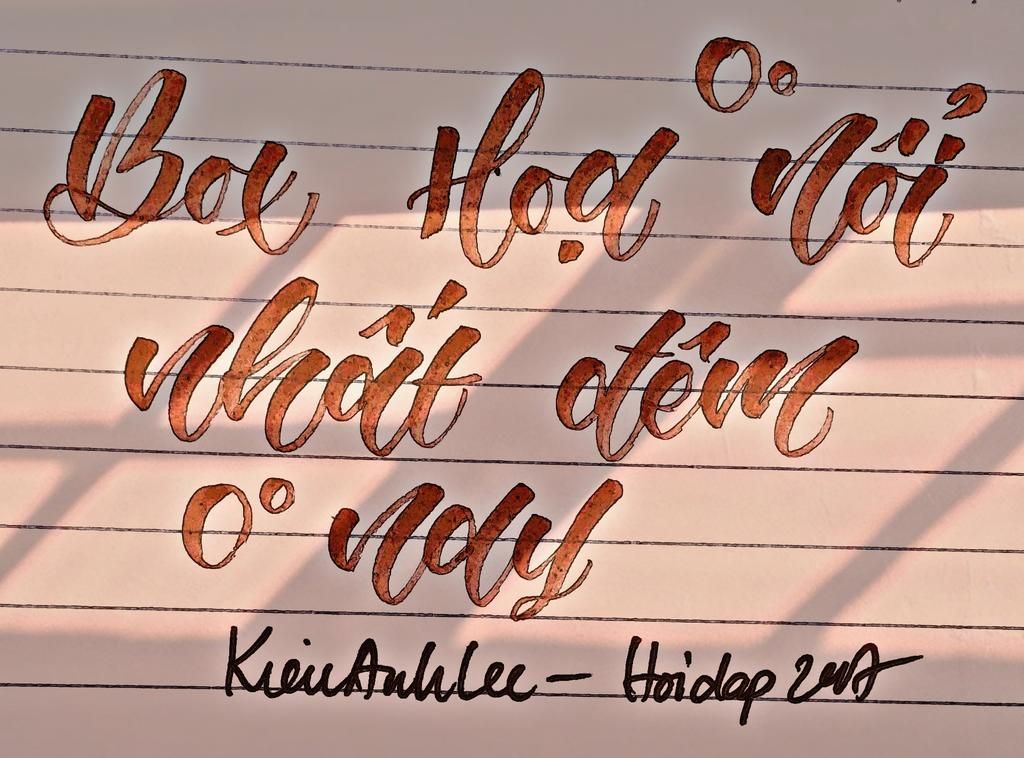 Ba Họa nổi
nhất đêm
nay
KienAnhLee — Hoidap 247